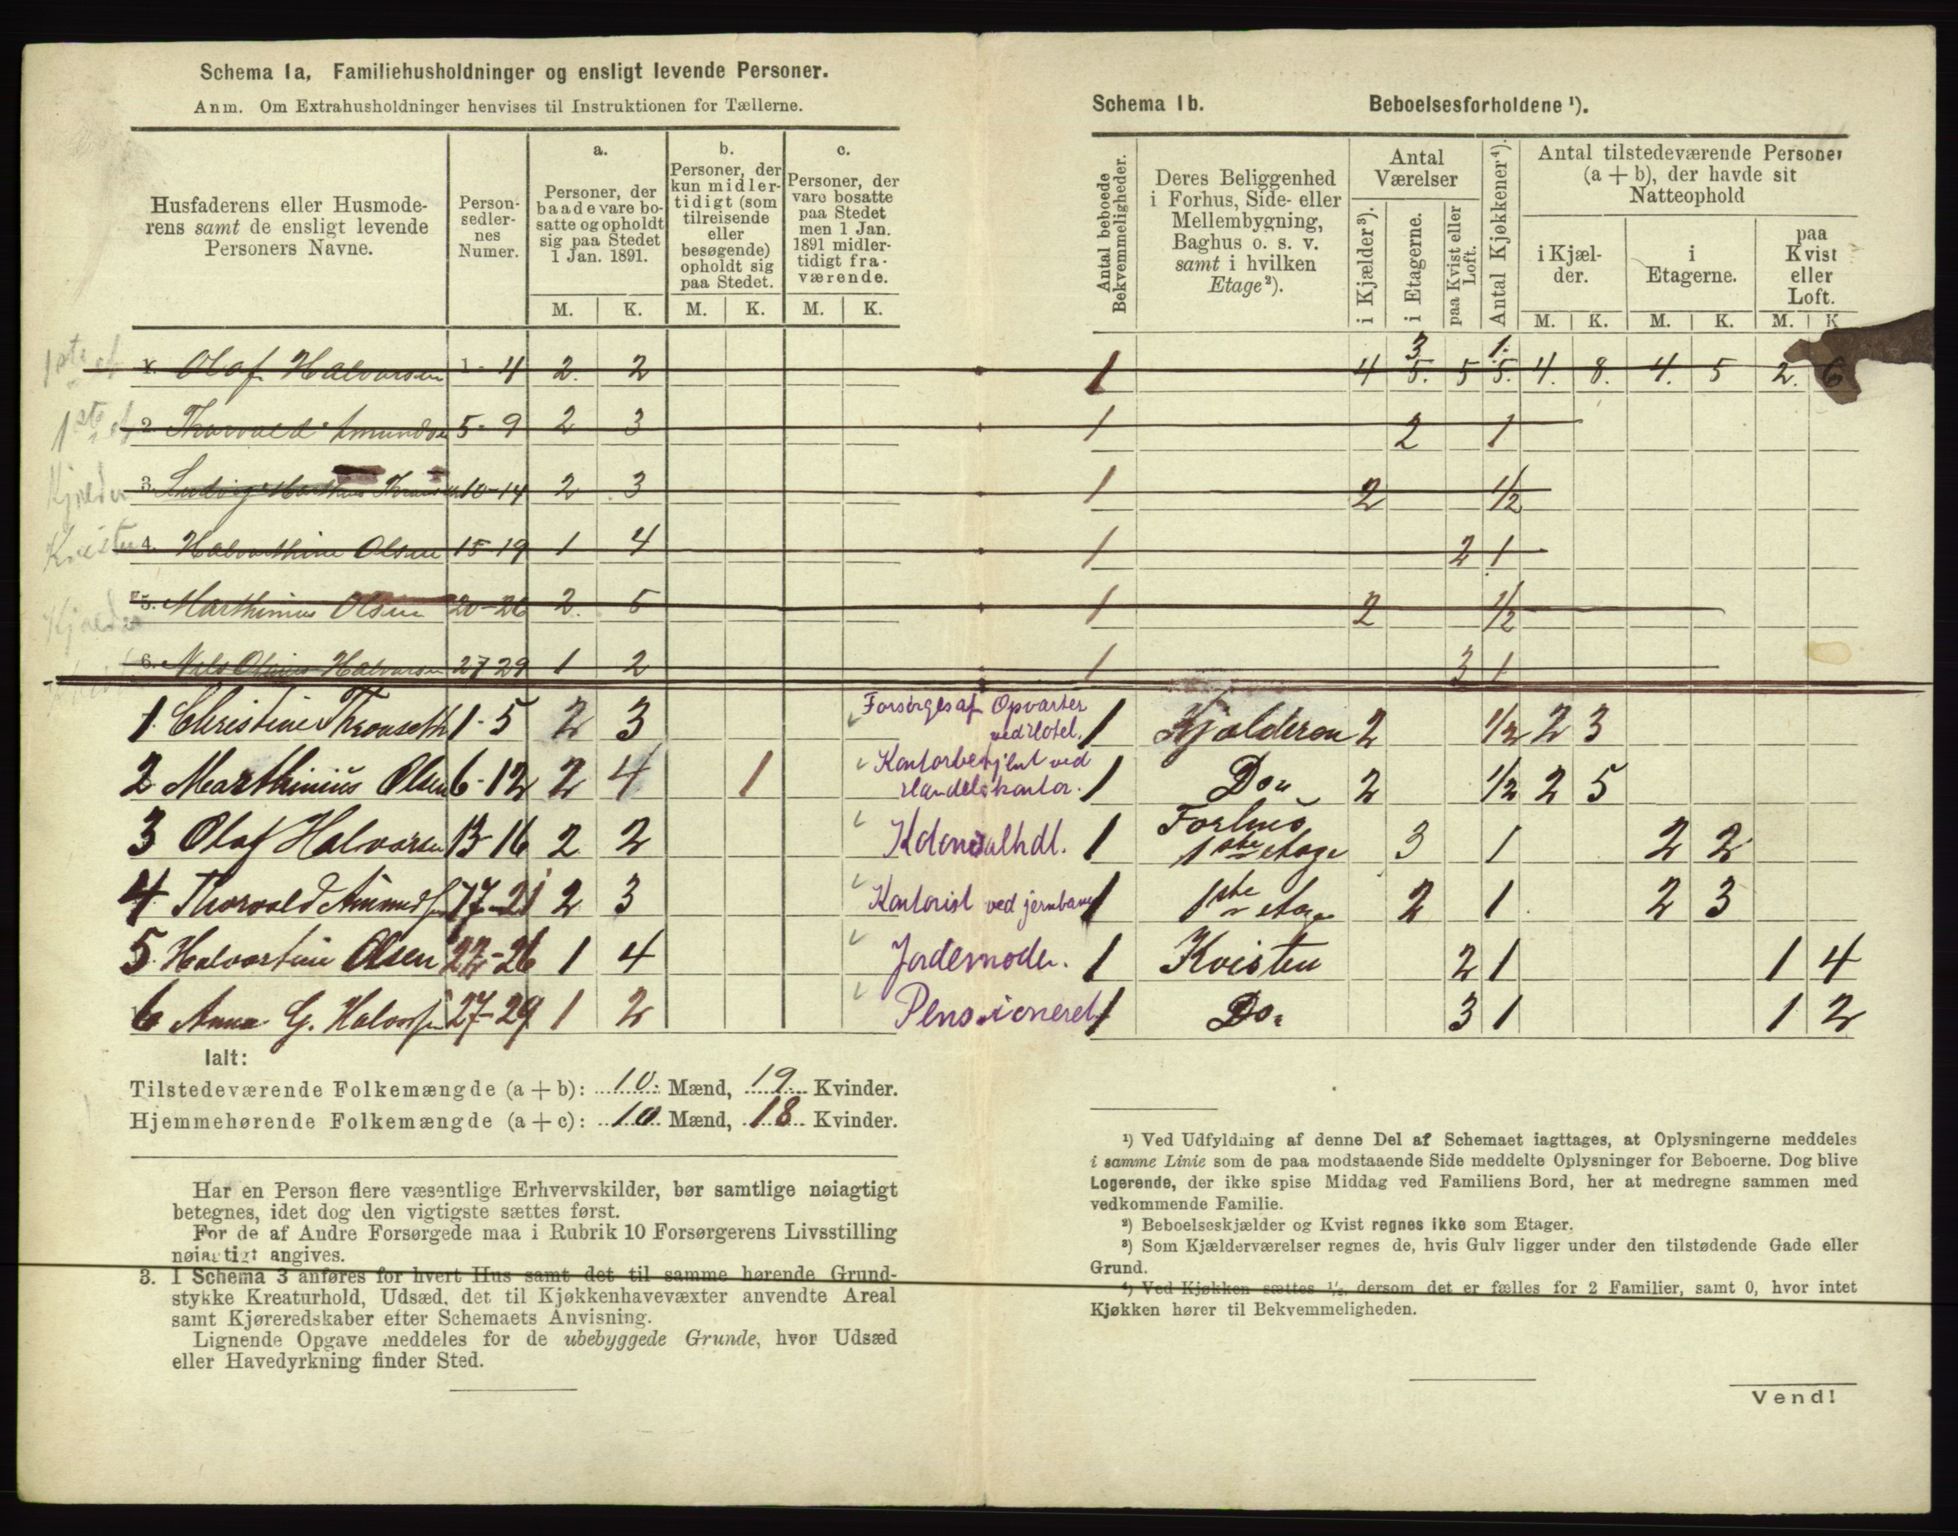 Schema 1a, Familiehusholdninger og ensligt levende Personer.
Anm. Om Extrahusholdninger henvises til Instruktionen for Tællerne.
Husfaderens eller Husmode-
rens samt de ensligt levende
Personers Navne.
Person-
sedler-
nes
Numer.
a.
Personer, der
baade vare bo-
satte og opholdt
sig paa Stedet
1 Jan. 1891.
b.
Personer, der
kun midler-
tidigt (som
tilreisende
eller
besøgende)
opholdt sig
paa Stedet.
c.
Personer, der
vare bosatte
paa Stedet
men 1 Jan.
1891 midler-
tidigt fra-
værende.
M. K. M. K. M. K.
1ste et 1. Olaf Halvorsen 1-4 2. 2
1ste et 2. Thorvald Amundsen 5-9 2 3
Kjælder 3. Ludvig Marthus 10-14 2 3
Kvisten 4. Halvarthine Olsen 15-19 1 4
Kjælder 5. Marthinius Olsen 20-26 2. 5
6. Nils Halvorsen 27-29 1 2
1. Christine Thronseth 1-5 2 3 Forsørges af Opvarter
ved Hotel.
2 Marthinius Olsen 6-12 2 4 1 Kontorbetjent ved
Handelskontor.
3 Olaf Halvorsen 13-16 2 2 Kolonialhdl.
4 Thorvald Amundsen 17-21 2 3 Kontorist ved jernbane
5. Halvartine Olsen 22-26 1 4 Jordemoder.
6 Anna G. Halvorsen 27-29 1 2 Pensioneret
Ialt:
Tilstedeværende Folkemængde (a + b): 10. Mænd, 19. Kvinder.
Hjemmehørende Folkemængde (a + c): 10 Mænd, 18 Kvinder.
Har en Person flere væsentlige Erhvervskilder, bør samtlige nøiagtigt
betegnes, idet dog den vigtigste sættes først.
For de af Andre Forsørgede maa i Rubrik 10 Forsørgerens Livsstilling
nøiagtigt angives.
3. I Schema 3 anføres for hvert Hus samt det til samme hørende Grund-
stykke Kreaturhold, Udsæd, det til Kjøkkenhavevæxter anvendte Areal
samt Kjøreredskaber efter Schemaets Anvisning.
Lignende Opgave meddeles for de ubebyggede Grunde, hvor Udsæd
eller Havedyrkning finder Sted.
Schema 1b. Beboelsesforholdene ¹).
Antal beboede
Bekvemmeligheder.
Deres Beliggenhed
i Forhus, Side- eller
Mellembygning,
Baghus o. s. v.
samt i hvilken
Etage²).
Antal
Værelser
i Kjælder³).
i Etagerne.
paa Kvist eller
Loft.
Antal Kjøkkener⁴).
Antal tilstedeværende Personer
(a + b), der havde sit
Natteophold
i Kjæl-
der.
i
Etagerne.
paa
Kvist
eller
Loft.
M. K. M. K. M. K.
3 1.
1 4 5. 5 5. 4. 8. 4. 5 2. 6
1 2 1
1 2 1/2
1 2 1
1 2 1/2
1 3 1
1 Kjælderen 2 1/2 2 3
1 Do„ 2 1/2 2 5
1 Forhus
1ste etage 3 1 2 2
1 1ste etage 2 1 2 3
1 Kvisten 2 1 1 4
1 Do„ 3 1 1 2
¹) Ved Udfyldning af denne Del af Schemaet iagttages, at Oplysningerne meddeles
i samme Linie som de paa modstaaende Side meddelte Oplysninger for Beboerne. Dog blive
Logerende, der ikke spise Middag ved Familiens Bord, her at medregne sammen med
vedkommende Familie.
²) Beboelseskjælder og Kvist regnes ikke som Etager.
³) Som Kjælderværelser regnes de, hvis Gulv ligger under den tilstødende Gade eller
Grund.
⁴) Ved Kjøkken sættes ½, dersom det er fælles for 2 Familier, samt 0, hvor intet
Kjøkken hører til Bekvemmeligheden.
Vend!